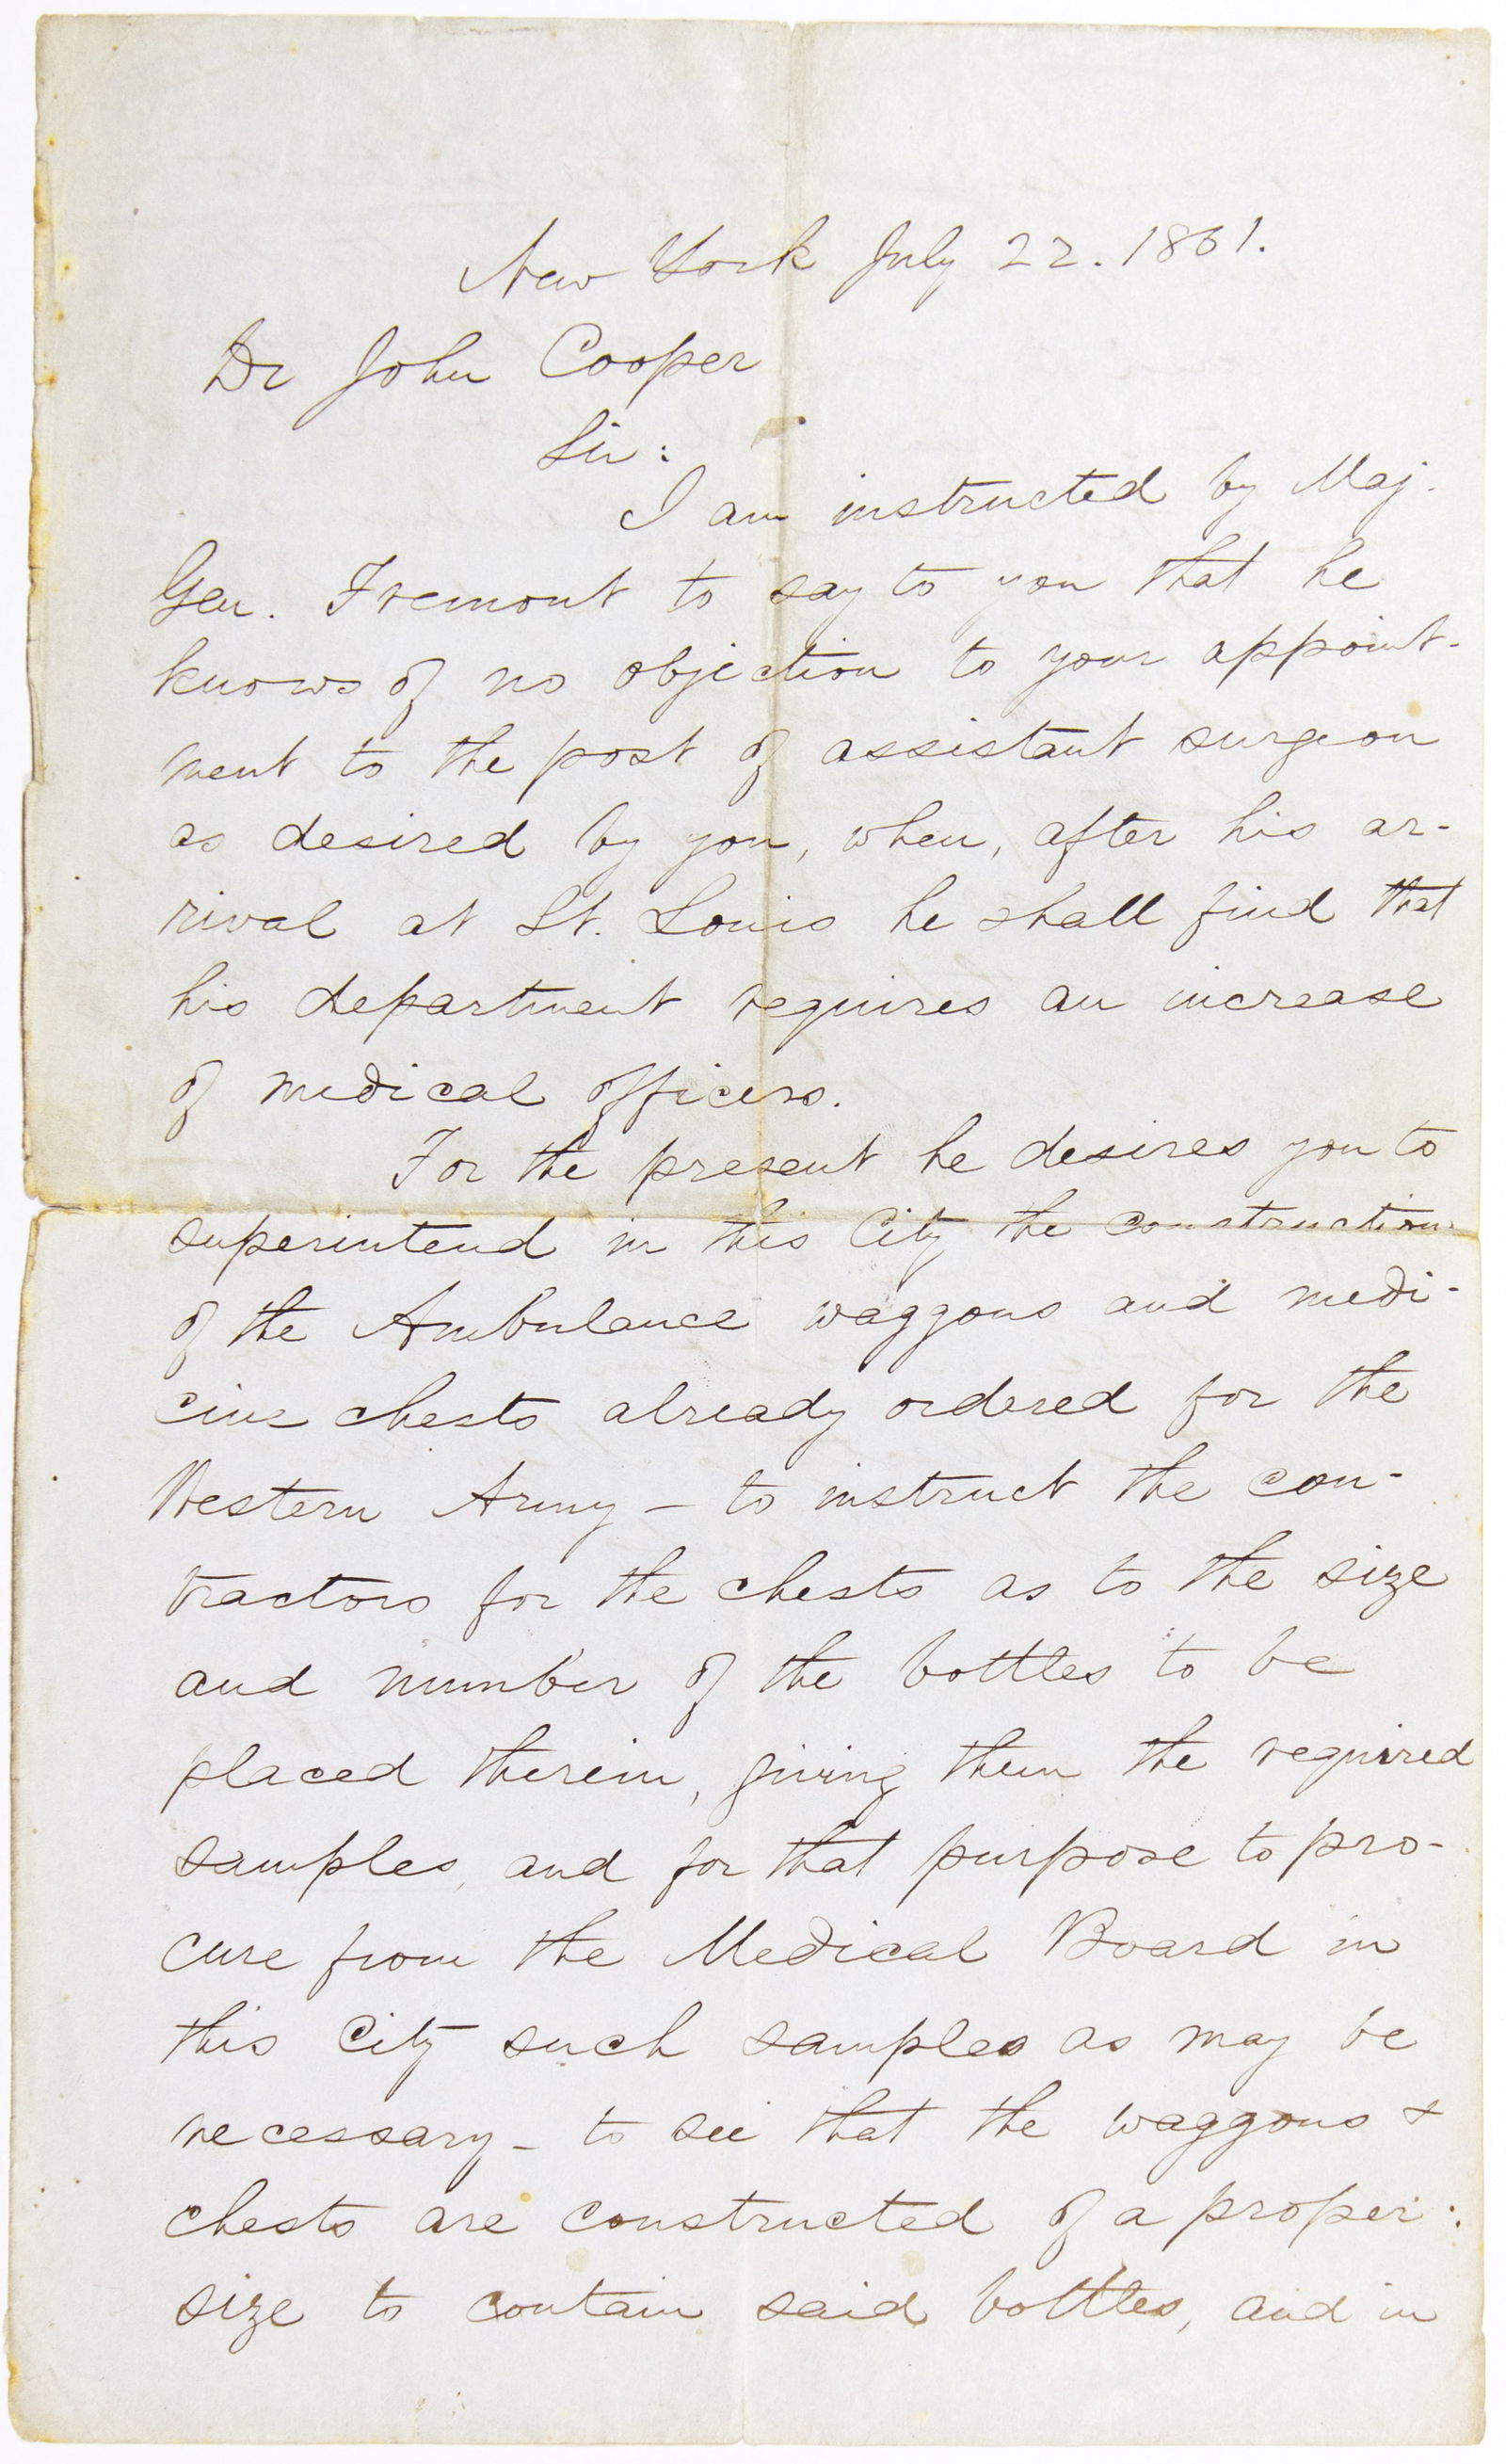 New York July 22. 1861.
Dr John Cooper
Sir:
I am instructed by Maj.
Gen. Fremont to say to you that he
knows of no objection to your appoint-
ment to the post of assistant surgeon
as desired by you, when, after his ar-
rival at St. Louis he shall find that
his department requires an increase
of medical officers.
For the present he desires you to
superintend in this City the construction
of the Ambulance waggons and medi-
cine chests already ordered for the
Western Army - to instruct the con-
tractors for the chests as to the size
and number of the bottles to be
placed therein, giving them the required
samples, and for that purpose to pro-
cure from the Medical Board in
this City such samples as may be
necessary - to see that the waggons &
chests are constructed of a proper
size to contain said bottles, and in